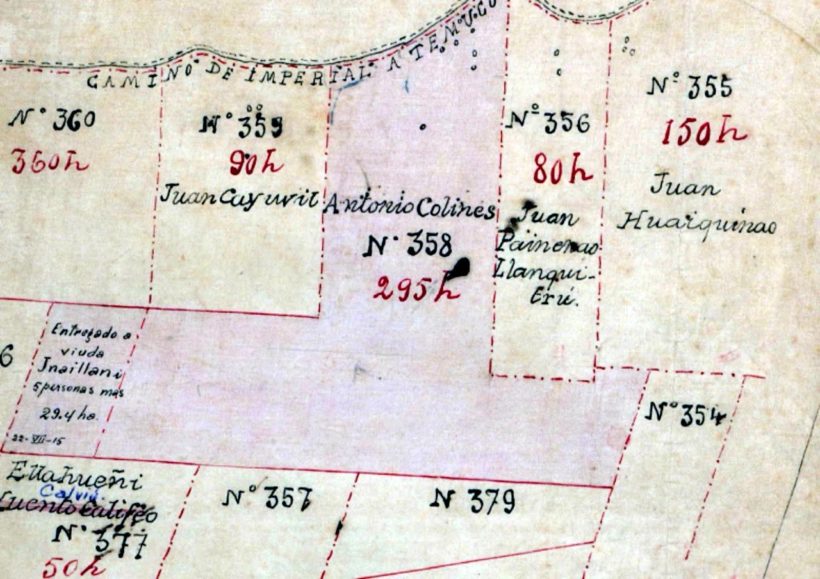 CAMINO DE IMPERIAL A TEMUCO
Nº 360
360h
Nº 359
90h
Juan Cayuvil
Antonio Colines
Nº 358
295h
Nº 356
80h
Juan
Painenao
Llanqui-
Erú.
Nº 355
150h
Juan
Huaiquinao
6
Entregado a
viuda
Inaillani
5 personas mas
29.4 ha
22-VII-15
Nº 354
Nº 357
N 379
Nº 377
50h